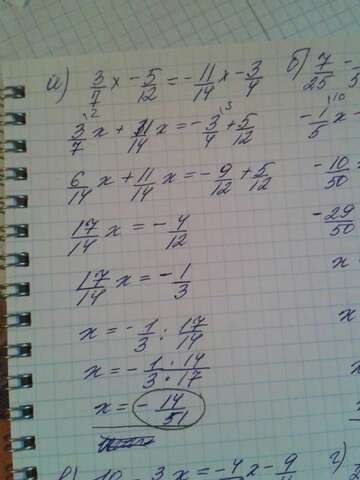 а) 3/7 x - 5/12 = - 11/14 x - 3/4
3/7 x + 11/14 x = - 3/4 + 5/12
6/14 x + 11/14 x = - 9/12 + 5/12
17/14 x = - 4/12
17/14 x = - 1/3
x = - 1/3 : 17/14
x = - 1·14/3·17
x = - 14/51
б) 7/25 -
- 1/5 x
- 10/50
- 29/50
x
x
x
в) 10 - 3 x = - 4 x - 9
г)